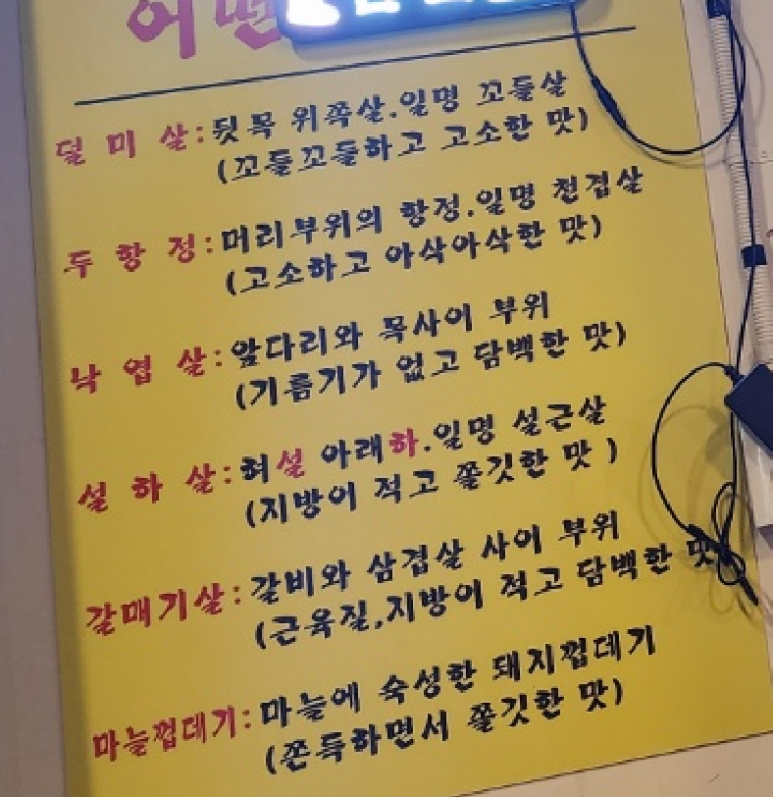 어떤
덜 미 살:뒷목 위쪽살.일명 꼬들살
(꼬들꼬들하고 고소한 맛)
두 항 정:머리부위의 항정.일명 천겹살
(고소하고 아삭아삭한 맛)
낙 엽 살:앞다리와 목사이 부위
(기름기가 없고 담백한 맛)
설 하 살:혀설 아래하.일명 설근살
(지방이 적고 쫄깃한 맛 )
갈매기살:갈비와 삼겹살 사이 부위
(근육질,지방이 적고 담백한 맛
마늘껍데기:마늘에 숙성한 돼지껍데기
(쫀득하면서 쫄깃한 맛)